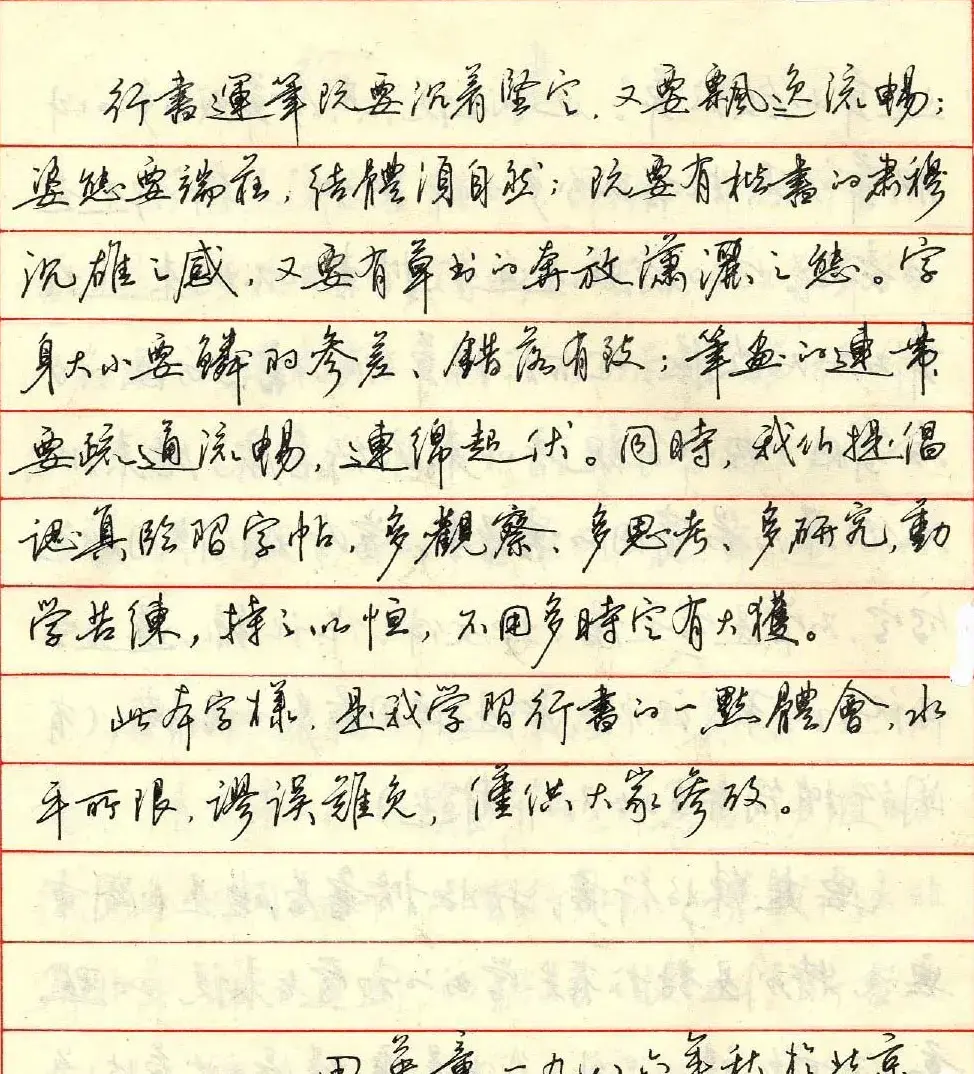 行書運筆既要沉着堅定,又要飄逸流暢;
姿態要端莊,結體須自然;既要有楷書的肅穆
沉雄之感,又要有草書的奔放瀟灑之態。字
身大小要鱗的參差、錯落有致;筆畫的連带
要疏通流暢,連綿起伏。同時,我们提倡
認真临習字帖,多觀察、多思考、多研究,勤
学苦練,持之以恒,不用多時定有大獲。
此本字樣,是我学習行書的一點體會,水
平所限,謬误難免,僅供大家参攷。
田英章一九八六年秋於北京